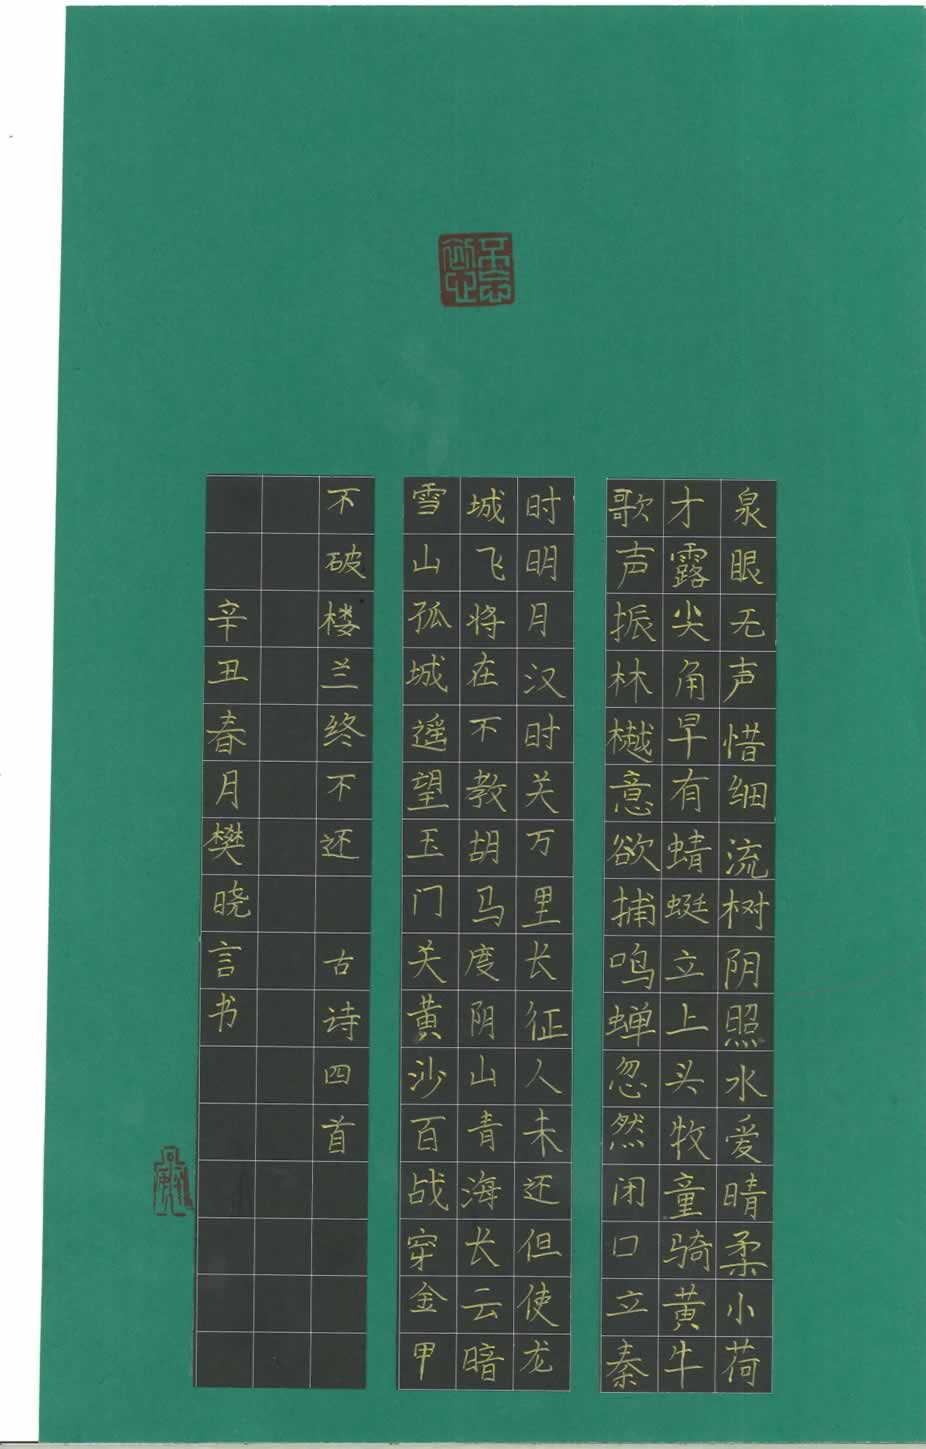 不忘初心
泉眼无声惜细流树阴照水爱晴柔小荷
才露尖角早有蜻蜓立上头牧童骑黄牛
歌声振林樾意欲捕鸣蝉忽然闭口立秦
时明月汉时关万里长征人未还但使龙
城飞将在不教胡马度阴山青海长云暗
雪山孤城遥望玉门关黄沙百战穿金甲
不破楼兰终不还 古诗四首
辛丑春月樊晓言书